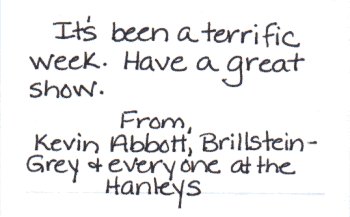 It's been a terrific
week. Have a great
show.
From,
Kevin Abbott, Brillstein-
Grey & everyone at the
Hanleys